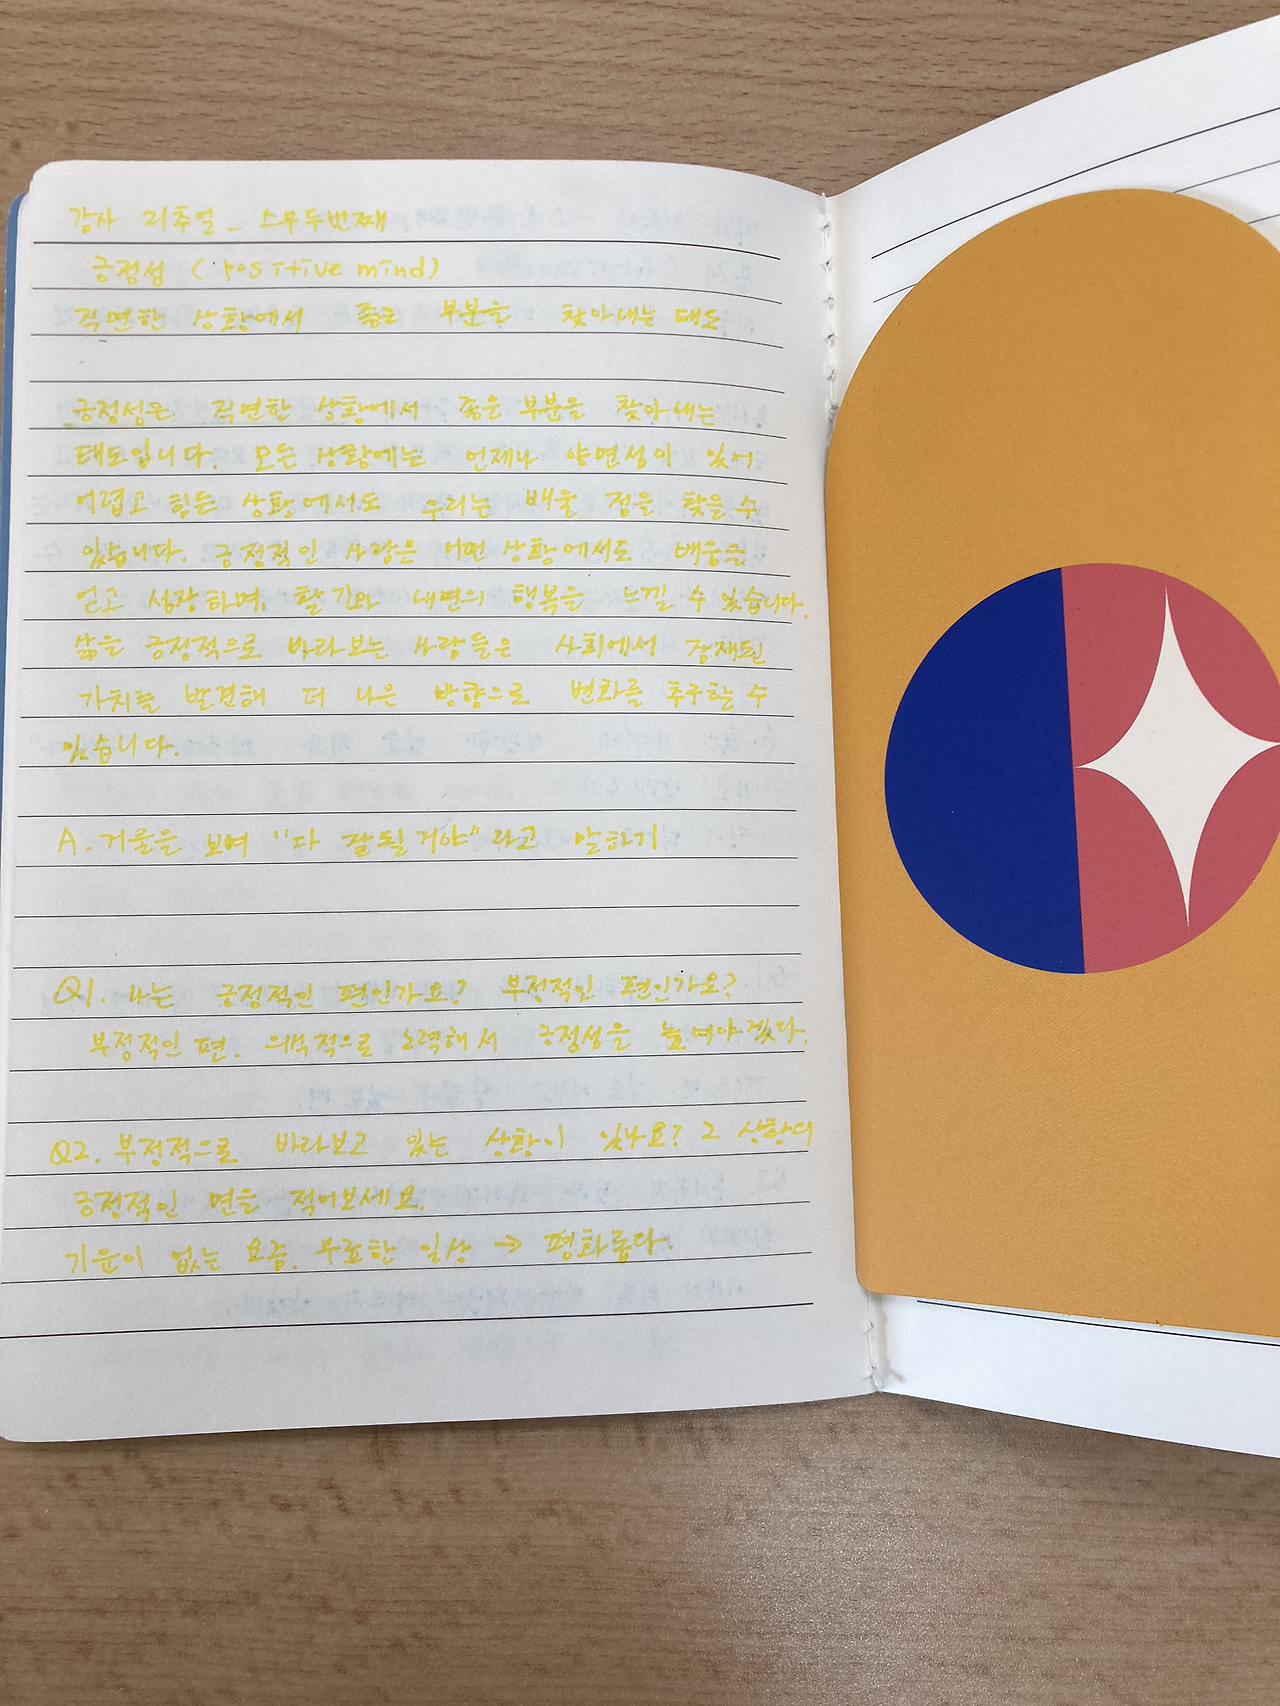 감사 리추얼_ 스무두번째
긍정성 (positive mind)
직면한 상황에서 좋은 부분을 찾아내는 태도
긍정성은 직면한 상황에서 좋은 부분을 찾아내는
태도입니다. 모든 상황에는 언제나 양면성이 있어
어렵고 힘든 상황에서도 우리는 배울 점을 찾을 수
있습니다. 긍정적인 사람은 어떤 상황에서도 배움을
얻고 성장하며, 활기와 내면의 행복을 느낄 수 있습니다.
삶을 긍정적으로 바라보는 사람들은 사회에서 잠재된
가치를 발견해 더 나은 방향으로 변화를 추구할 수
있습니다.
A. 거울을 보며 "다 잘될거야" 라고 말하기
Q1. 나는 긍정적인 편인가요? 부정적인 편인가요?
부정적인 편. 의식적으로 노력해서 긍정성을 높여야겠다.
Q2. 부정적으로 바라보고 있는 상황이 있나요? 그 상황의
긍정적인 면을 적어보세요.
기운이 없는 요즘. 무료한 일상 → 평화롭다.